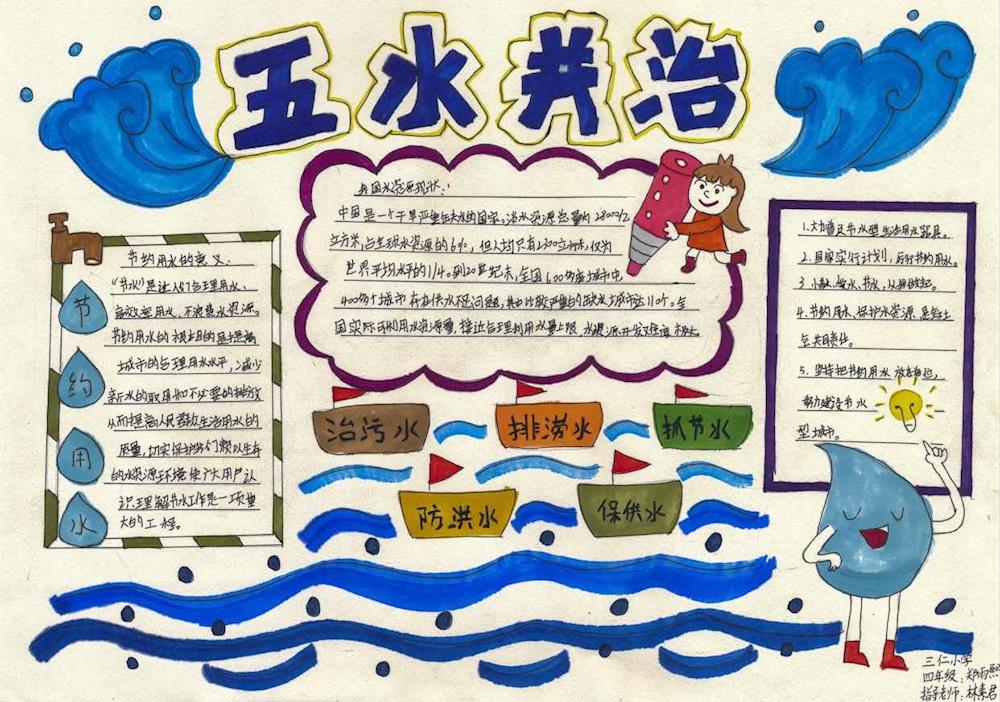 五水共治
我国水资源现状：
中国是一个干旱严重缺水的国家。淡水资源总量为28000亿
立方米，占全球水资源的6%，但人均只有2300立方米，仅为
世界平均水平的1/4。到20世纪末，全国600多座城市中
400多个城市存在供水不足问题，其中比较严重的缺水城市达110个。全
国实际可利用水资源量，接近合理利用水量上限，水资源开发难度极大
节约用水的意义：
"节水"是让人们合理用水，
高效率用水，不浪费水资源。
节约用水的根本目的是提高
城市的合理用水水平，减少
新水的取用和不必要的排放
从而提高人民群众生活用水的
质量，切实保护我们赖以生存
的水资源环境使广大用户认
识理解节水工作是一项重
大的工程。
节
约
用
水
1.大力普及节水型生活用水器具。
2.国家实行计划，厉行节约用水。
3.爱水、节水，从我做起。
4.节约用水、保护水资源，是全社
会共同责任。
5.坚持把节约用水放在首位，
努力建设节水
型城市。
治污水
排涝水
抓节水
防洪水
保供水
三仁小学
四年级：郑雨熙
指导老师：林素君